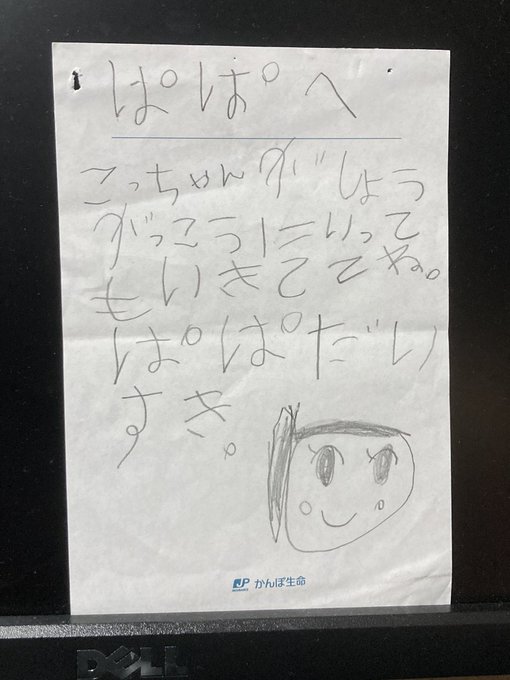 ぱぱへ
こっちゃんがしょう
がっこうにいって
もいきててね。
ぱぱだい
すき。
JP
かんぽ生命
DELL